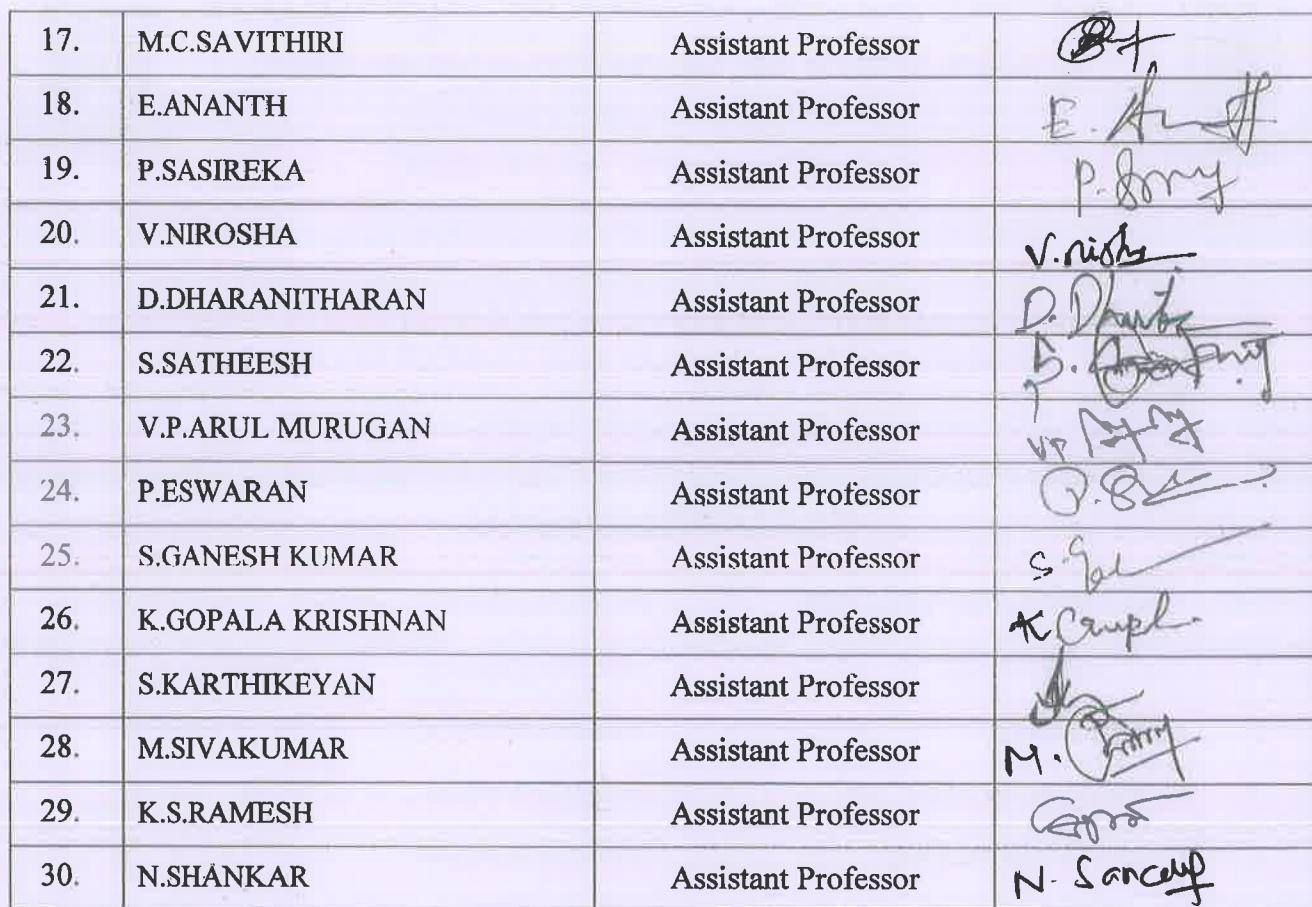 17. M.C.SAVITHIRI Assistant Professor
18. E.ANANTH Assistant Professor E.
19. P.SASIREKA Assistant Professor P.
20. V.NIROSHA Assistant Professor V.
21. D.DHARANITHARAN Assistant Professor D.
22. S.SATHEESH Assistant Professor S.
23. V.P.ARUL MURUGAN Assistant Professor VP
24. P.ESWARAN Assistant Professor P.
25. S.GANESH KUMAR Assistant Professor S.
26. K.GOPALA KRISHNAN Assistant Professor K
27. S.KARTHIKEYAN Assistant Professor
28. M.SIVAKUMAR Assistant Professor M.
29. K.S.RAMESH Assistant Professor
30. N.SHANKAR Assistant Professor N.